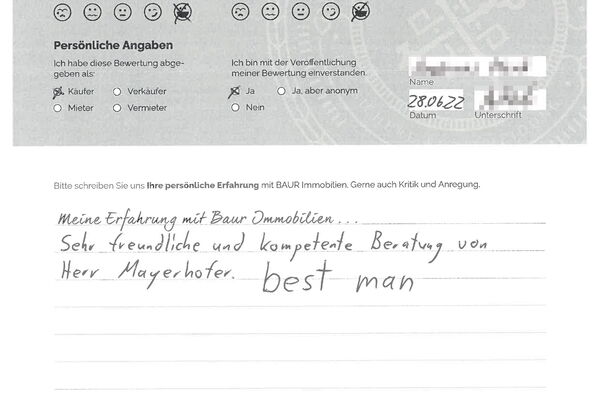 Persönliche Angaben
Ich habe diese Bewertung abge-
geben als:
Käufer
Verkäufer
Mieter
Vermieter
Ich bin mit der Veröffentlichung
meiner Bewertung einverstanden.
Ja
Ja, aber anonym
Nein
Name
28.06.22
Datum
Unterschrift
Bitte schreiben Sie uns Ihre persönliche Erfahrung mit BAUR Immobilien. Gerne auch Kritik und Anregung.
Meine Erfahrung mit Baur Immobilien...
Sehr freundliche und kompetente Beratung von
Herr Mayerhofer. best man